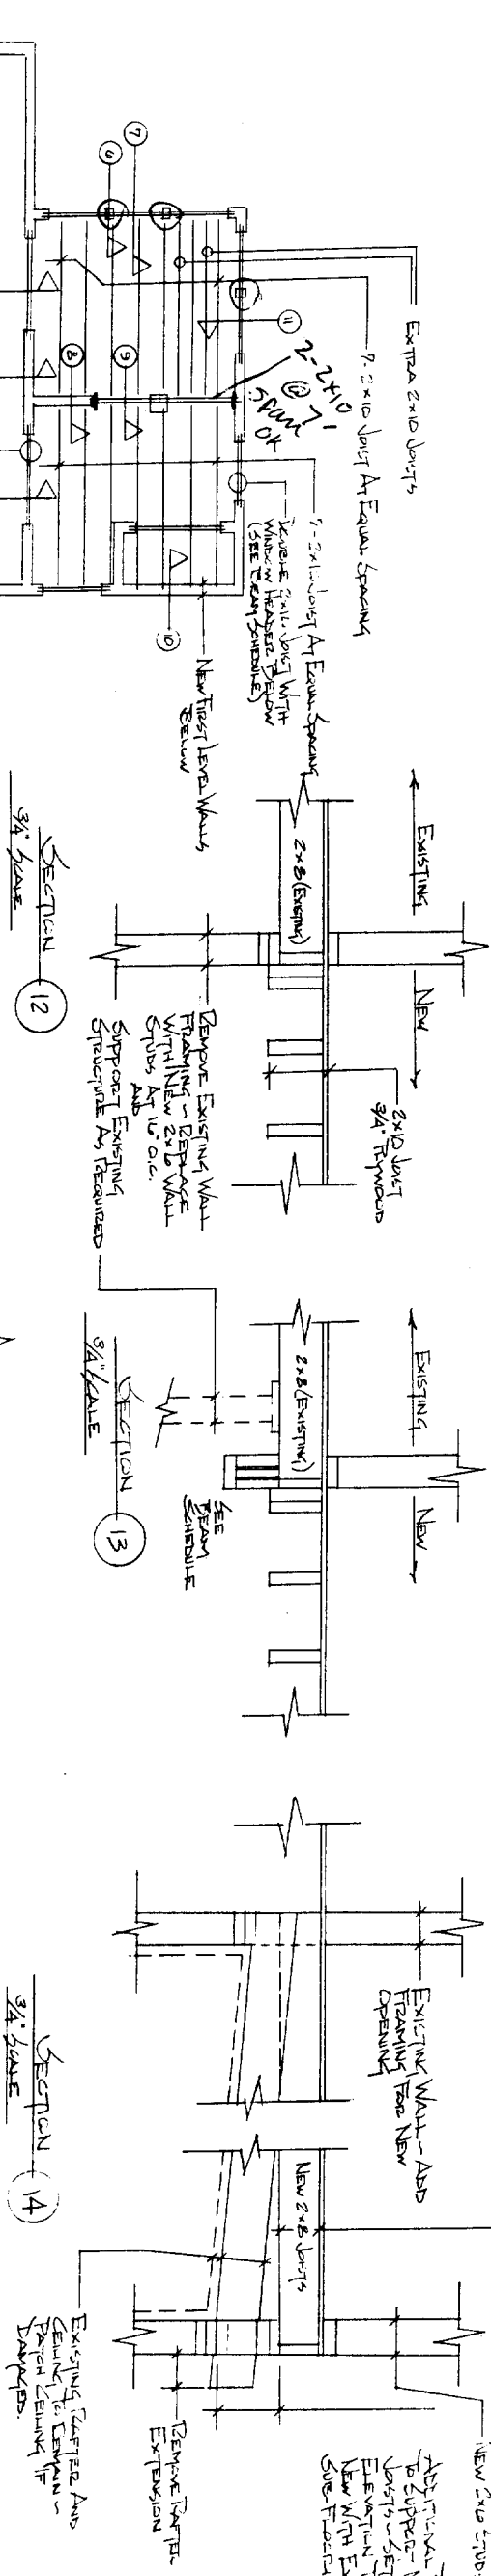 EXTRA 2x10 JOISTS
7-2x10 JOIST AT EQUAL SPACING
7-2x10 JOIST AT EQUAL SPACING
DOUBLE 2x10 JOIST WITH
WINDOW HEADER BELOW
(SEE BEAM SCHEDULE)
NEW FIRST LEVEL WALLS
BELOW
2-2x10
@ 7'
SPAN
OK
6
7
8
9
10
11
EXISTING
NEW
2x8 (EXISTING)
2x10 JOIST
3/4" PLYWOOD
REMOVE EXISTING WALL
FRAMING - REPLACE
WITH NEW 2x6 WALL
STUDS AT 16" O.C.
AND
SUPPORT EXISTING
STRUCTURE AS REQUIRED
SECTION
3/4" SCALE
12
EXISTING
NEW
2x8 (EXISTING)
SEE
BEAM
SCHEDULE
SECTION
3/4" SCALE
13
EXISTING WALL - ADD
FRAMING FOR NEW
OPENING
NEW 2x8 JOISTS
SECTION
3/4" SCALE
14
EXISTING RAFTER AND
CEILING TO REMAIN -
PATCH CEILING IF
DAMAGED.
REMOVE RAFTER
EXTENSION
NEW 2x6 STUD
ADDITIONAL
TO SUPPORT
JOISTS - SET
ELEVATION
NEW WITH
SUB-FLOOR